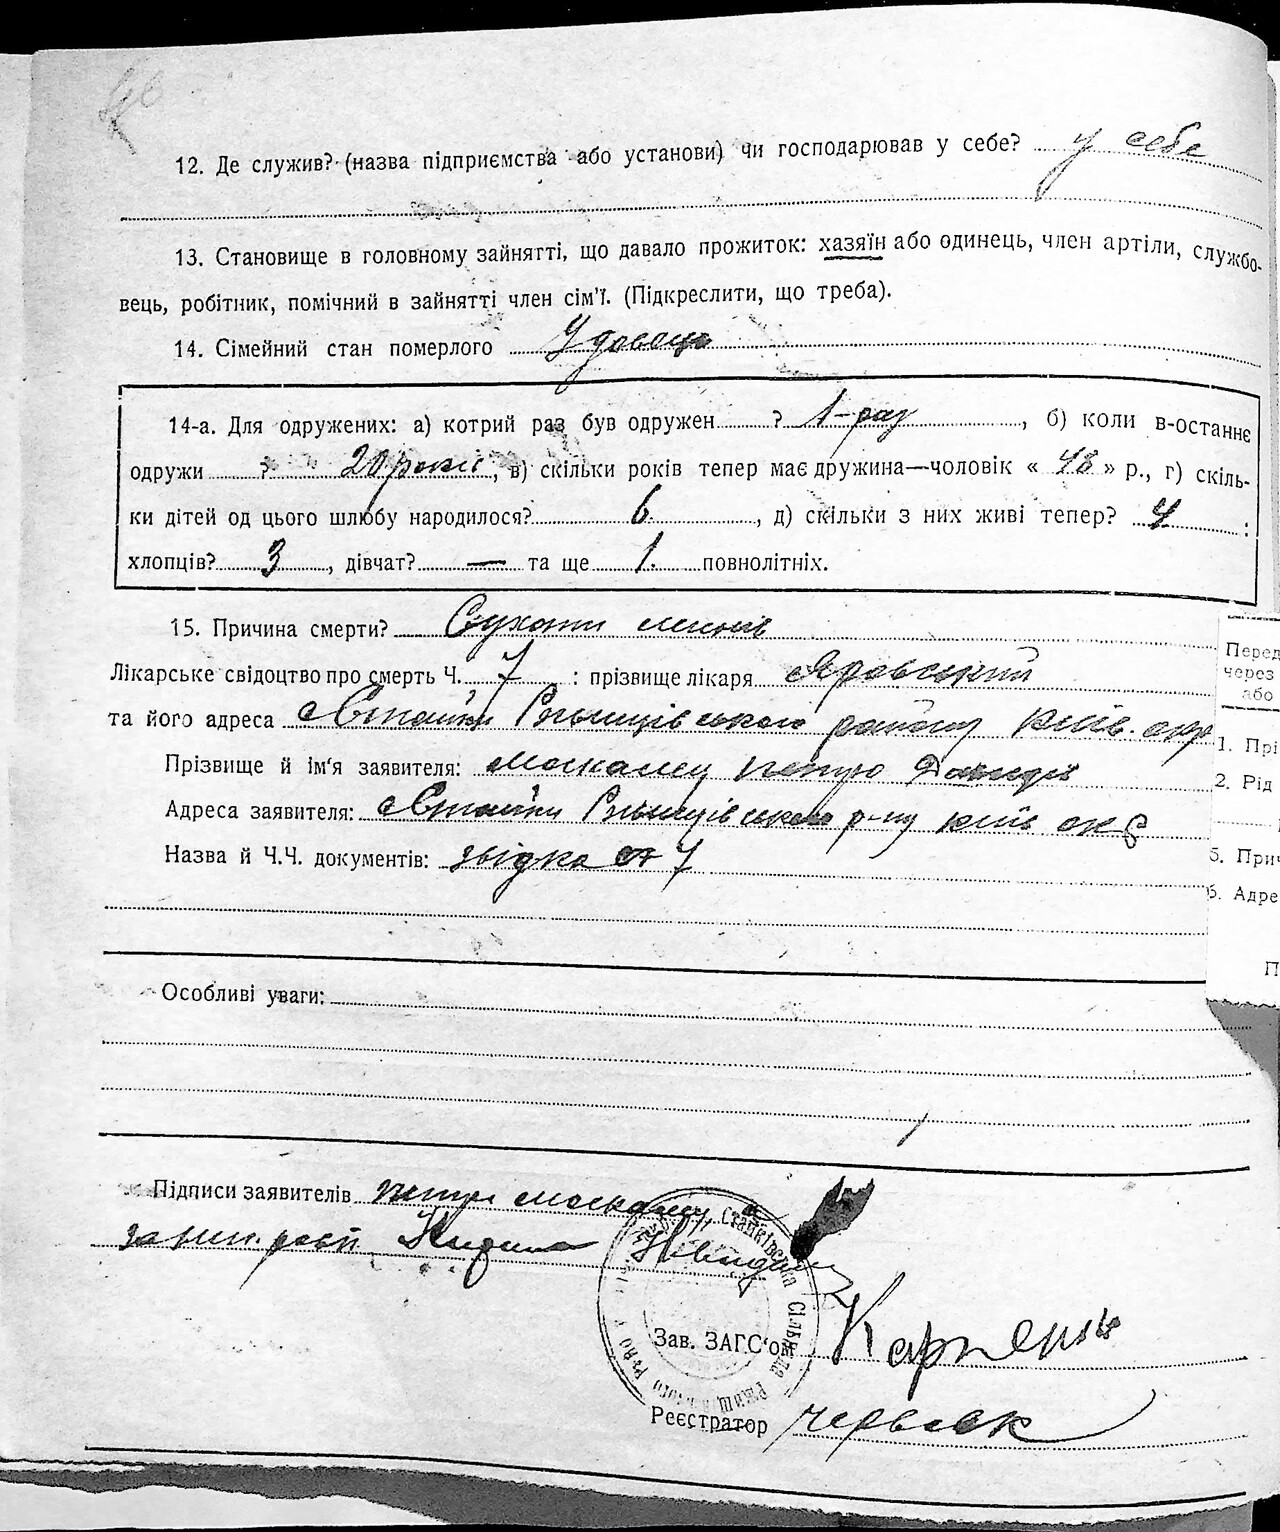 12. Де служив? (назва підприємства або установи) чи господарював у себе? у себе
13. Становище в головному зайнятті, що давало прожиток: хазяїн або одинець, член артіли, службо-
вець, робітник, помічний в зайнятті член сім'ї. (Підкреслити, що треба).
14. Сімейний стан померлого Удовець
14-а. Для одружених: а) котрий раз був одружен ? 1-раз, б) коли в-останнє
одружи ? 20 років, в) скільки років тепер має дружина—чоловік « 48 » р., г) скіль-
ки дітей од цього шлюбу народилося? 6, д) скільки з них живі тепер? 4 :
хлопців? 3, дівчат? — та ще 1. повнолітніх.
15. Причина смерти? Сухоти
Лікарське свідоцтво про смерть Ч. 7 : прізвище лікаря Яровський
та його адреса Стайки Ржищівського району Київ. окр
Прізвище й ім'я заявителя: Москалец Петро
Адреса заявителя: Стайки Ржищівського р-ну Київ окр
Назва й Ч.Ч. документів: звідка 7
Особливі уваги:
Підписи заявителів Петро Москалец
Стайківська Сільрада
Зав. ЗАГС'ом
Реєстратор Червяк
Перед
через
або
1. Прі
2. Рід
5. Прич
6. Адре
П